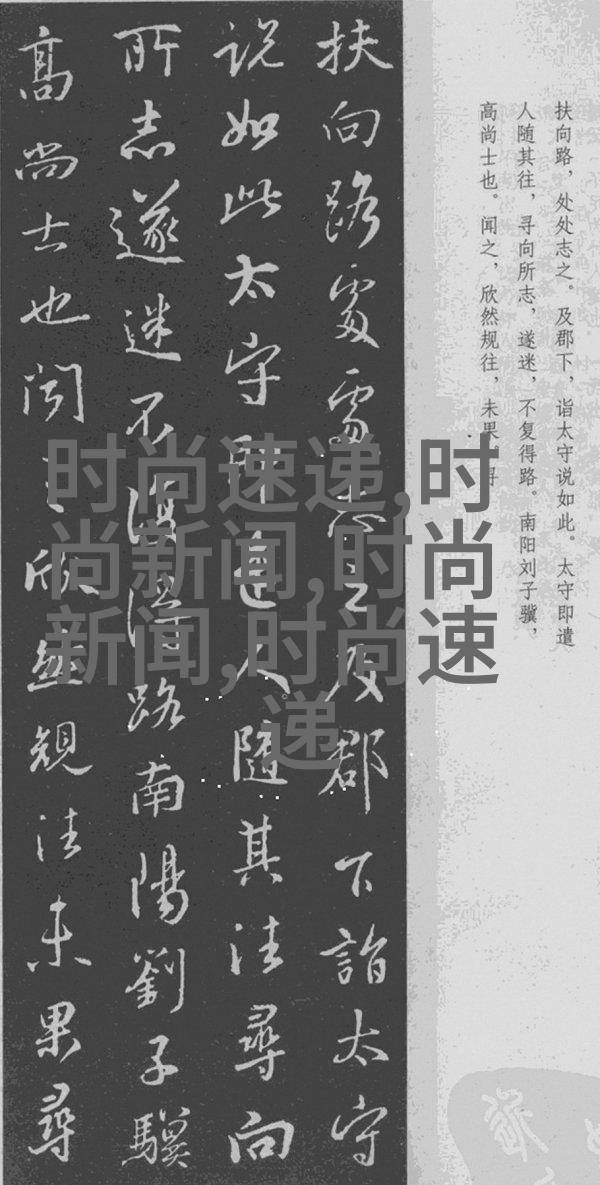 扶向路處處志之及郡下詣太守
说如此太守即遣人隨其往尋向
所志遂迷不復得路南陽劉子驥
高尚士也聞之欣然規往未果尋
扶向路，处处志之。及郡下，诣太守说如此。太守即遣
人随其往，寻向所志，遂迷，不复得路。南阳刘子骥，
高尚士也。闻之，欣然规往，未果，寻
时尚速递,时
尚新闻,时尚
新闻,时尚速
递